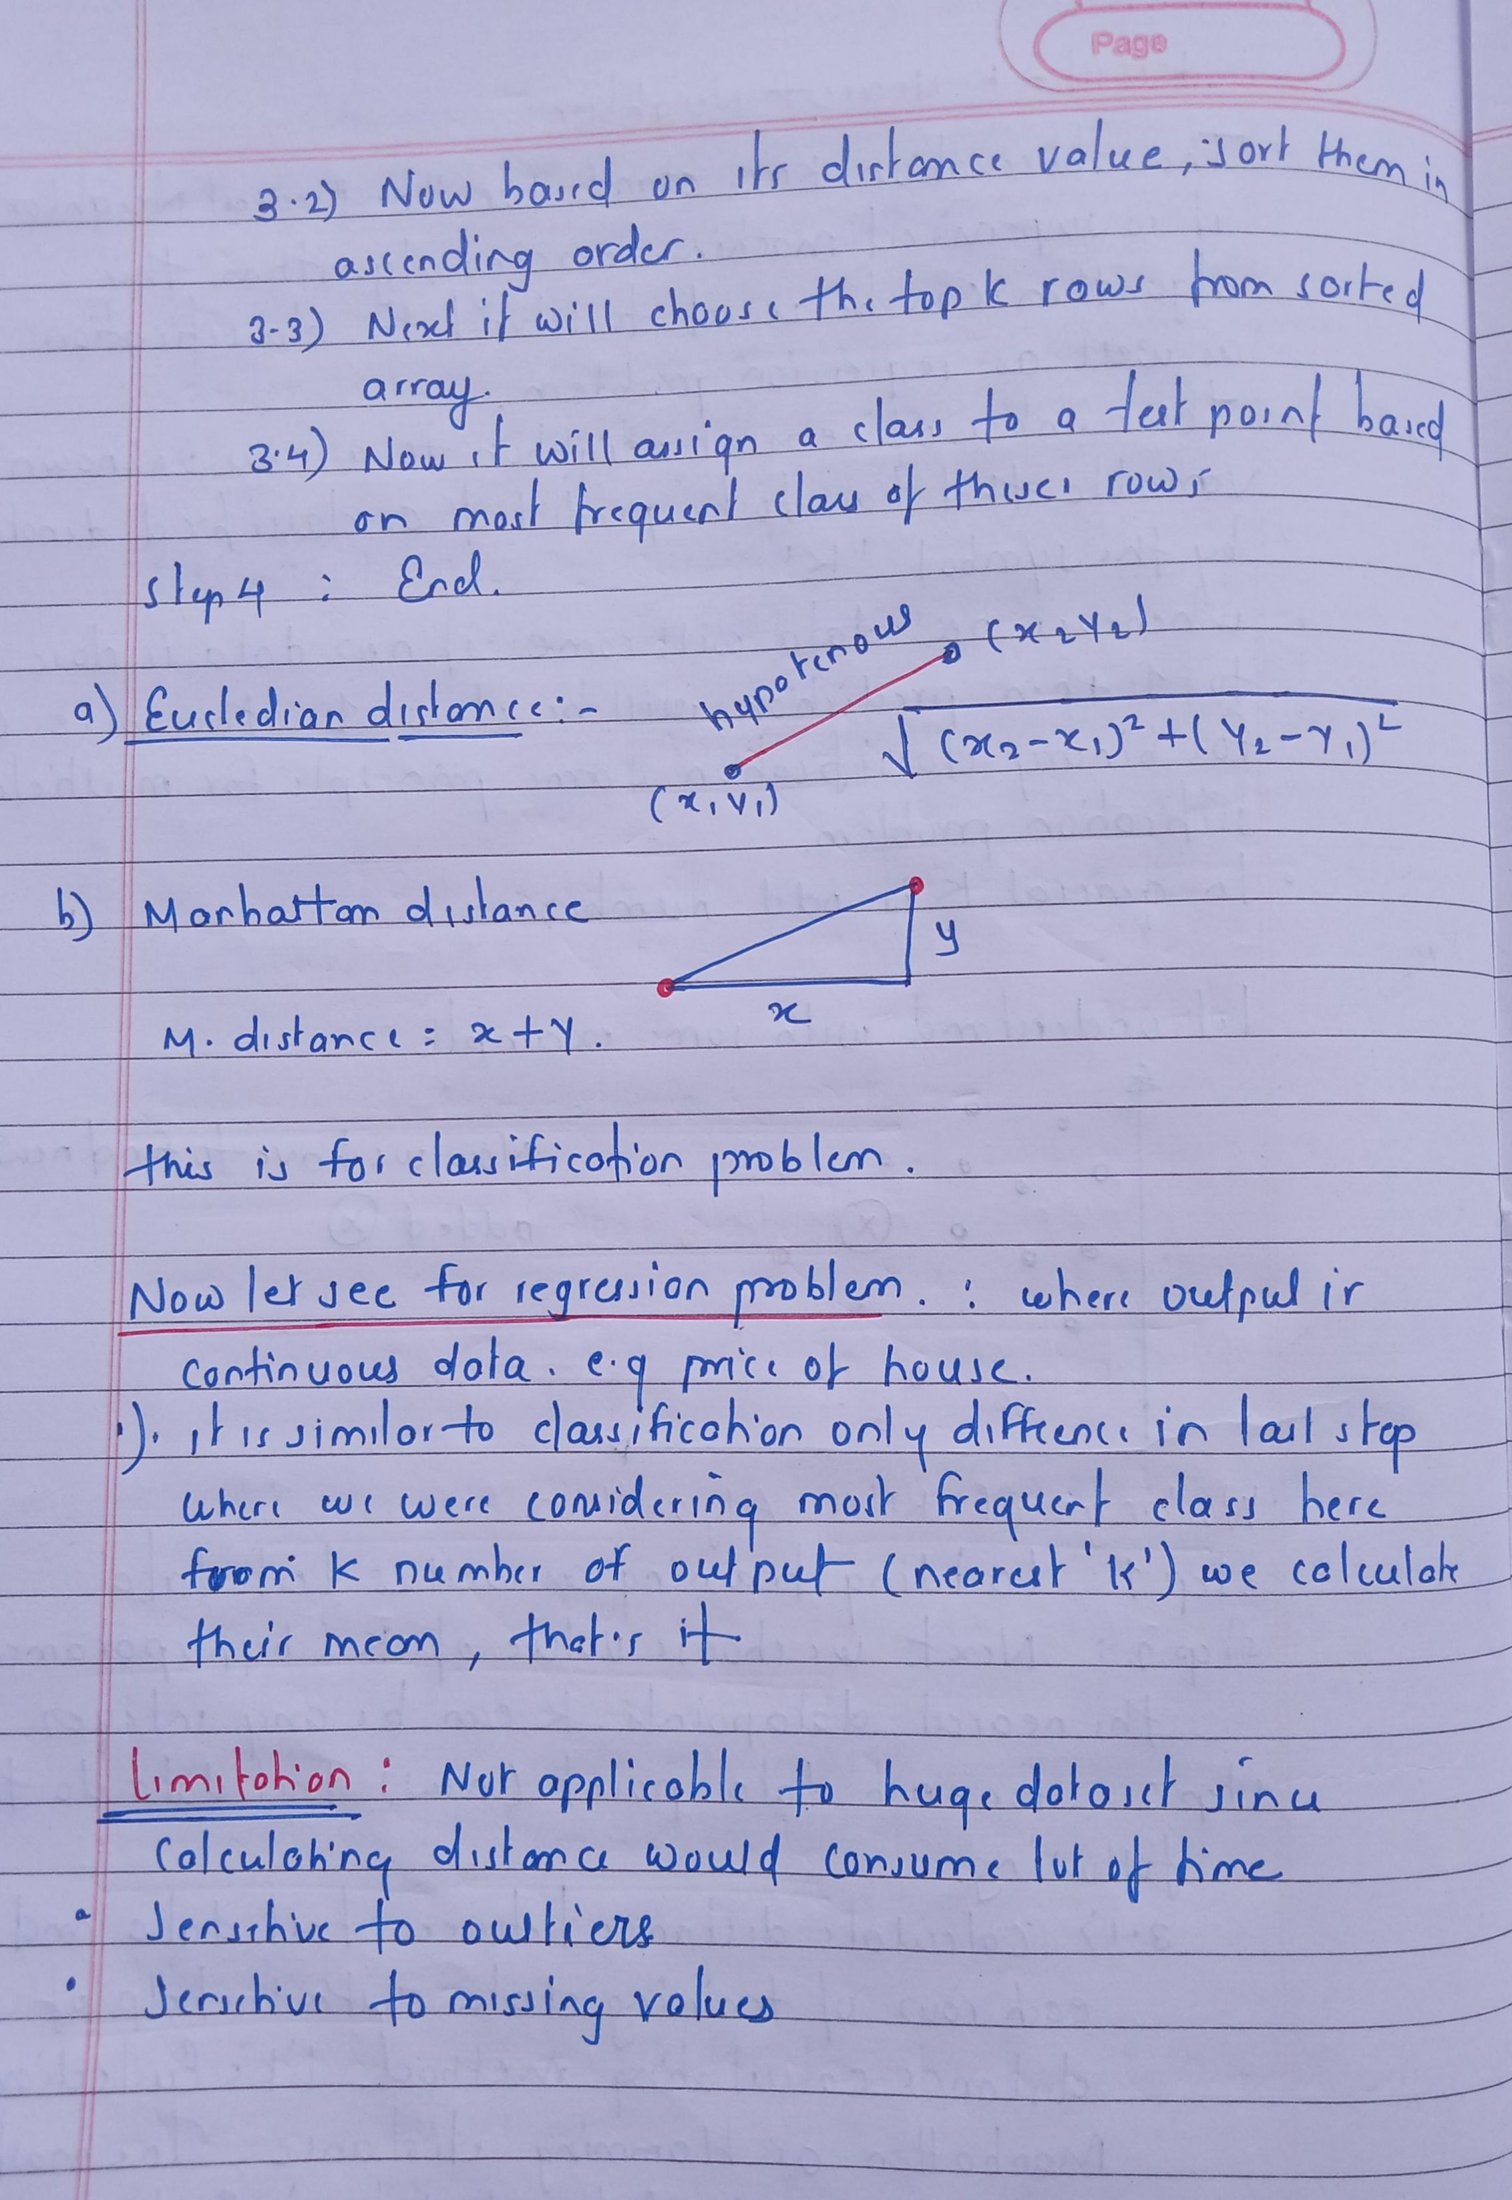 Page
3.2) Now based on its distance value, sort them in
ascending order.
3.3) Next it will choose the top k rows from sorted
array.
3.4) Now it will assign a class to a test point based
on most frequent class of these rows
Step 4 : End.
hypotenous (x2 y2)
a) Eucledian distance:-
√(x2-x1)² + (y2-y1)²
(x1 y1)
b) Manhattan distance
y
x
M. distance = x + y.
this is for classification problem.
Now let see for regression problem. : where output is
continuous data. e.g price of house.
1). it is similar to classification only diffrence in last step
where we were considering most frequent class here
from K number of output (nearest 'k') we calculate
their mean, that's it
Limitation : Not applicable to huge dataset since
calculating distance would consume lot of time
• Sensitive to outliers
• Sensitive to missing values